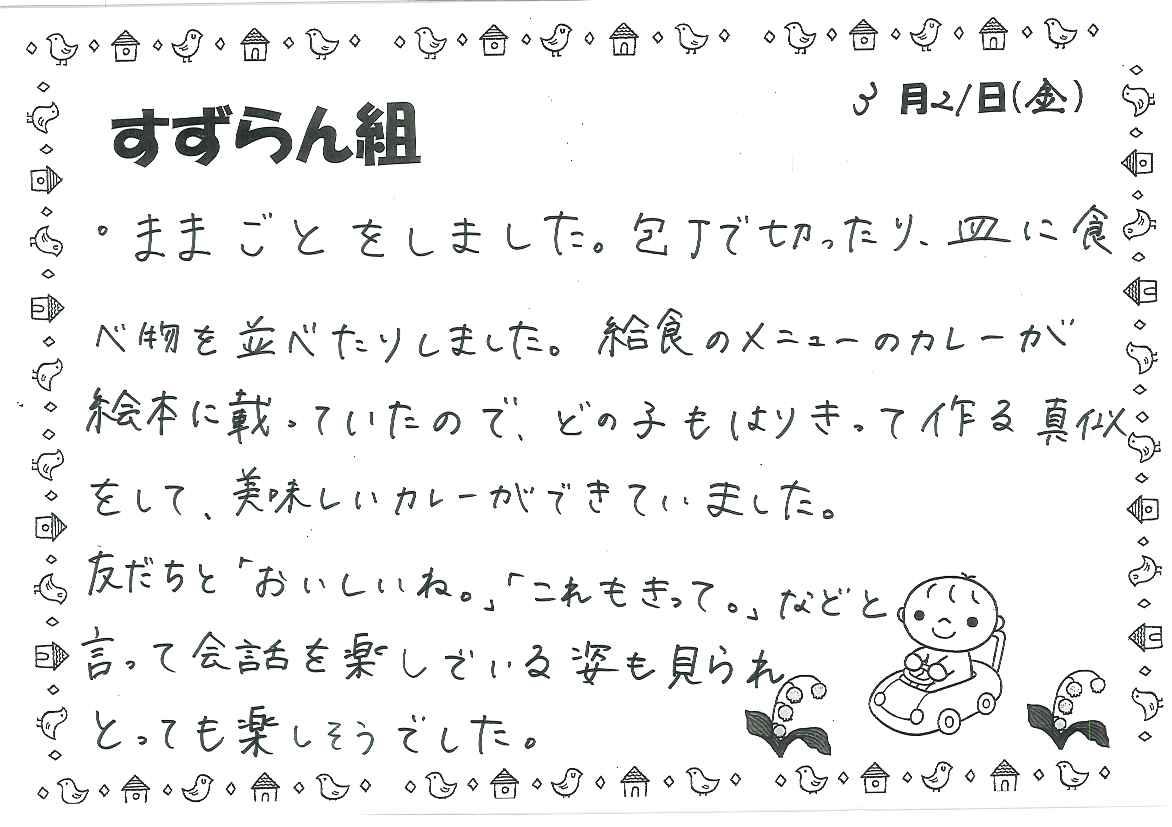 3月21日(金)
すずらん組
・ままごとをしました。包丁で切ったり、皿に食
べ物を並べたりしました。給食のメニューのカレーが
絵本に載っていたので、どの子もはりきって作る真似
をして、美味しいカレーができていました。
友だちと「おいしいね。」「これもきって。」などと
言って会話を楽しでいる姿も見られ
とっても楽しそうでした。